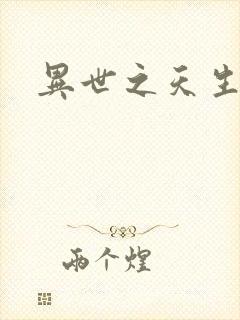 異世之天生
兩个煌